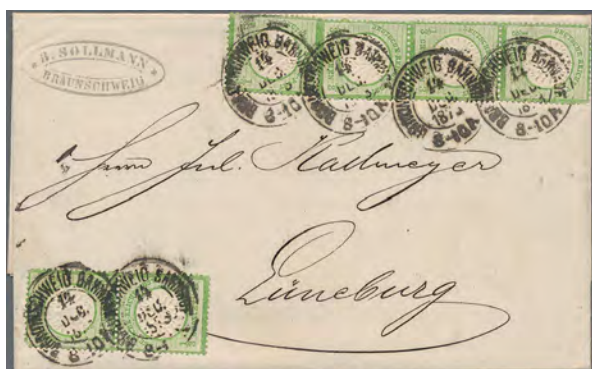 H. SOLLMANN
BRAUNSCHWEIG
BRAUNSCHWEIG BAHNHOF
14
DEC.
187
8-10A
BRAUNSCHWEIG BAHNHOF
14
DEC.
187
8-10A
BRAUNSCHWEIG BAHNHOF
14
DEC.
187
8-10A
BRAUNSCHWEIG BAHNHOF
14
DEC.
187
8-10A
Herrn Jul. Kallmeyer
Lüneburg
BRAUNSCHWEIG BAHN
14
DEC.
8-10A
BRAUNSCHWEIG BAHN
14
DEC.
8-1